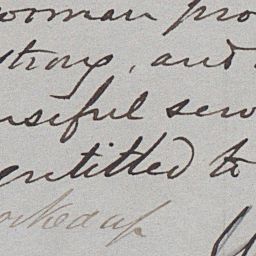 woman pro
strong, and
useful serv
entitled to
worked up